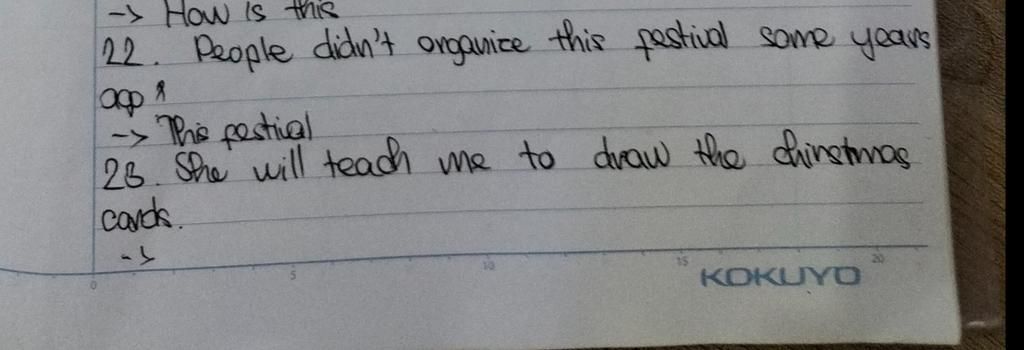 -> How is this
22. People didn't organize this festival some years
ago
-> This festival
23. She will teach me to draw the chirstmas
cards.
->
0 5 10 15 20
KOKUYO